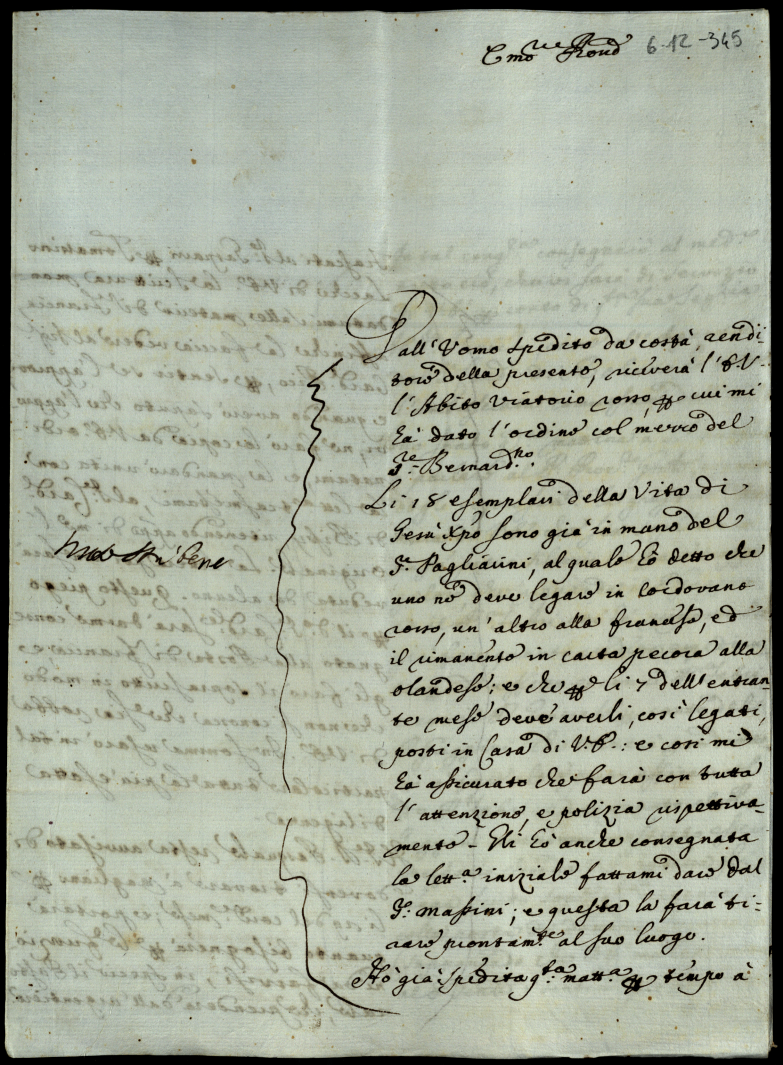 Emo. e Rmo
6-12-345
Dall'Uomo spedito da costà, rendi-
tore della presente, riceverà l'E.V.
l'Abito viatorio rosso, cui mi
hà dato l'ordine col mezzo del
Sr. Bernardno.
Li 18 esemplari della Vita di
Gesù Xpo sono già in mano del
Sr. Pagliarini, al quale hò detto che
uno nè deve legare in Cordovano
rosso, un'altro alla francese, ed
il rimanente in carta pecora alla
olandese; e che li 7 dell'entran-
te mese deve averli, così legati,
posti in Casa di V.E.: e così mi
hà assicurato che farà con tutta
l'attenzione, e polizia rispettiva-
mente - Gli hò anche consegnata
la letta. iniziale fattami dare dal
Sr. Massini; e questa la farà ti-
rare prontamte. al suo luogo.
Hò già spedita qta. matta. tempo à